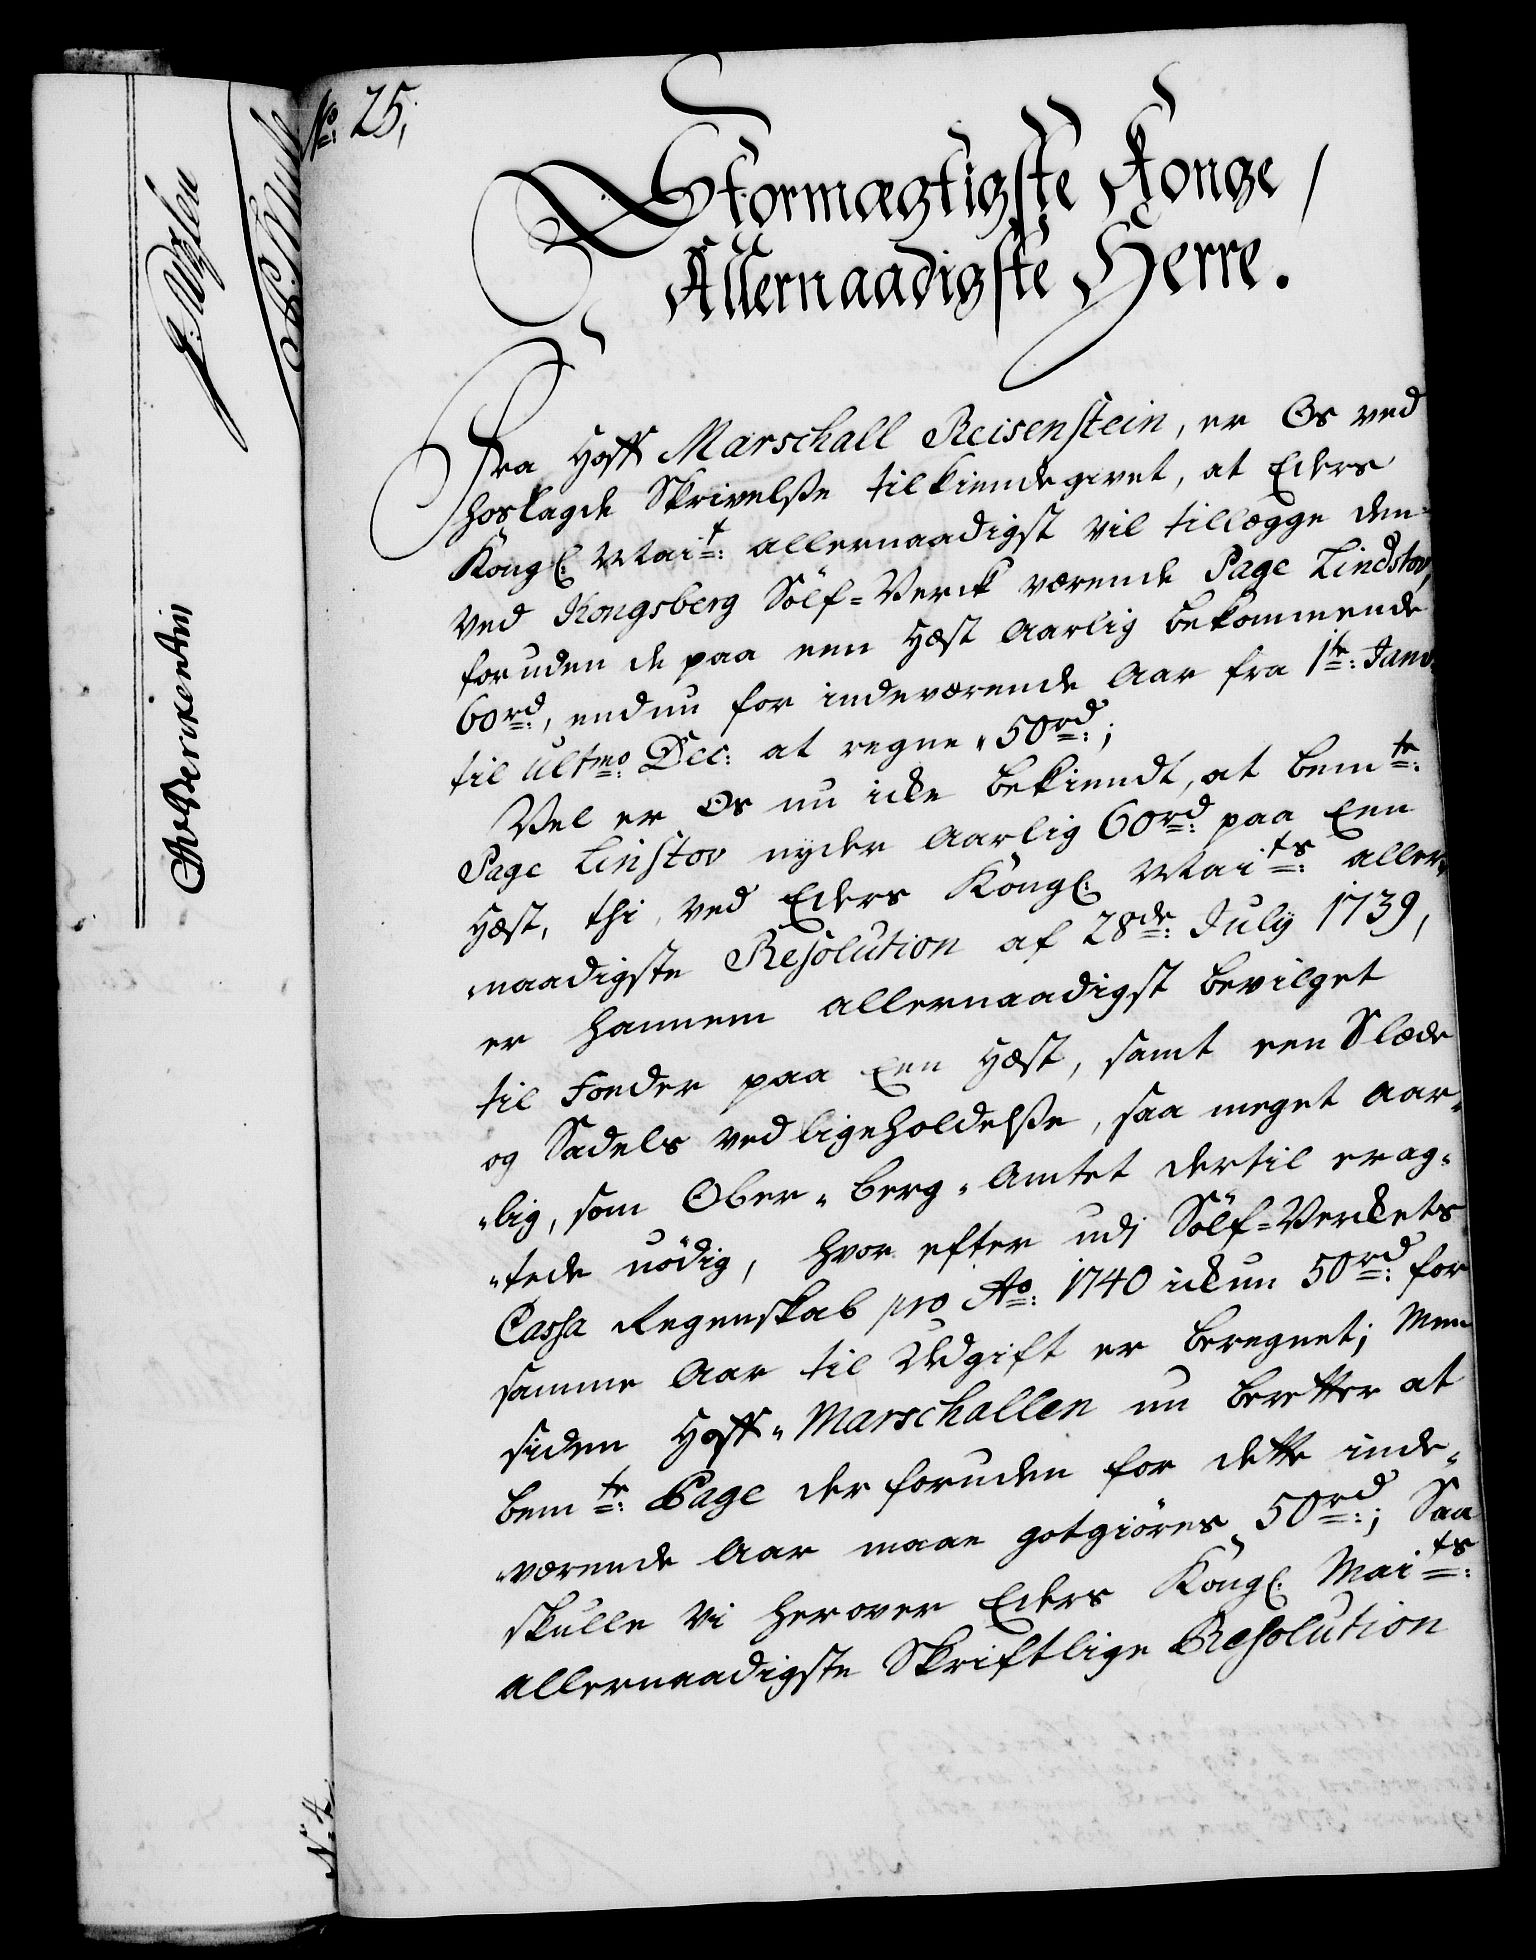 No: 25,
Stormægtigste Konge /
Allernaadigste Herre.
Fra Hoff Marschall Reisenstein, er Os ved
hoslagde Skrivelße tilkiendegivet, at Eders
Kongl: Mait: allernaadigst vil tillægge den
ved Kongsberg Sölf-Verck værende Page Lindstov,
foruden de paa een Hæst Aarlig bekommende
60rd:, endnu for indeværende Aar fra 1te: Janv:
til Ultmo: Dec: at regne, 50rd:;
Vel er Os nu icke bekiendt, at bemte:
Page Linstov nyder Aarlig 60rd: paa Een
Hæst, thi ved Eders Kongl: Maits: aller-
naadigste Resolution af 28de: July 1739,
er hannem allernaadigst bevilget
til Foeder paa Een Hæst, samt een Slæde
og Sadels vedligeholdelße, saa meget aar-
lig, som Ober-Berg-Amtet dertil erag-
tede nödig, hvor efter udj Sölf-Verckets
Cassa Regenskab pro Ao: 1740 ickun 50rd: for
samme Aar til Udgift er beregnet; Men
siden Hoff-Marschallen nu beretter at
bemte: Page der foruden for dette inde-
værende Aar maae gotgiöres 50rd:; Saa
skulle Vi herover Eders Kongl: Maits:
allernaadigste Skriftlige Resolution